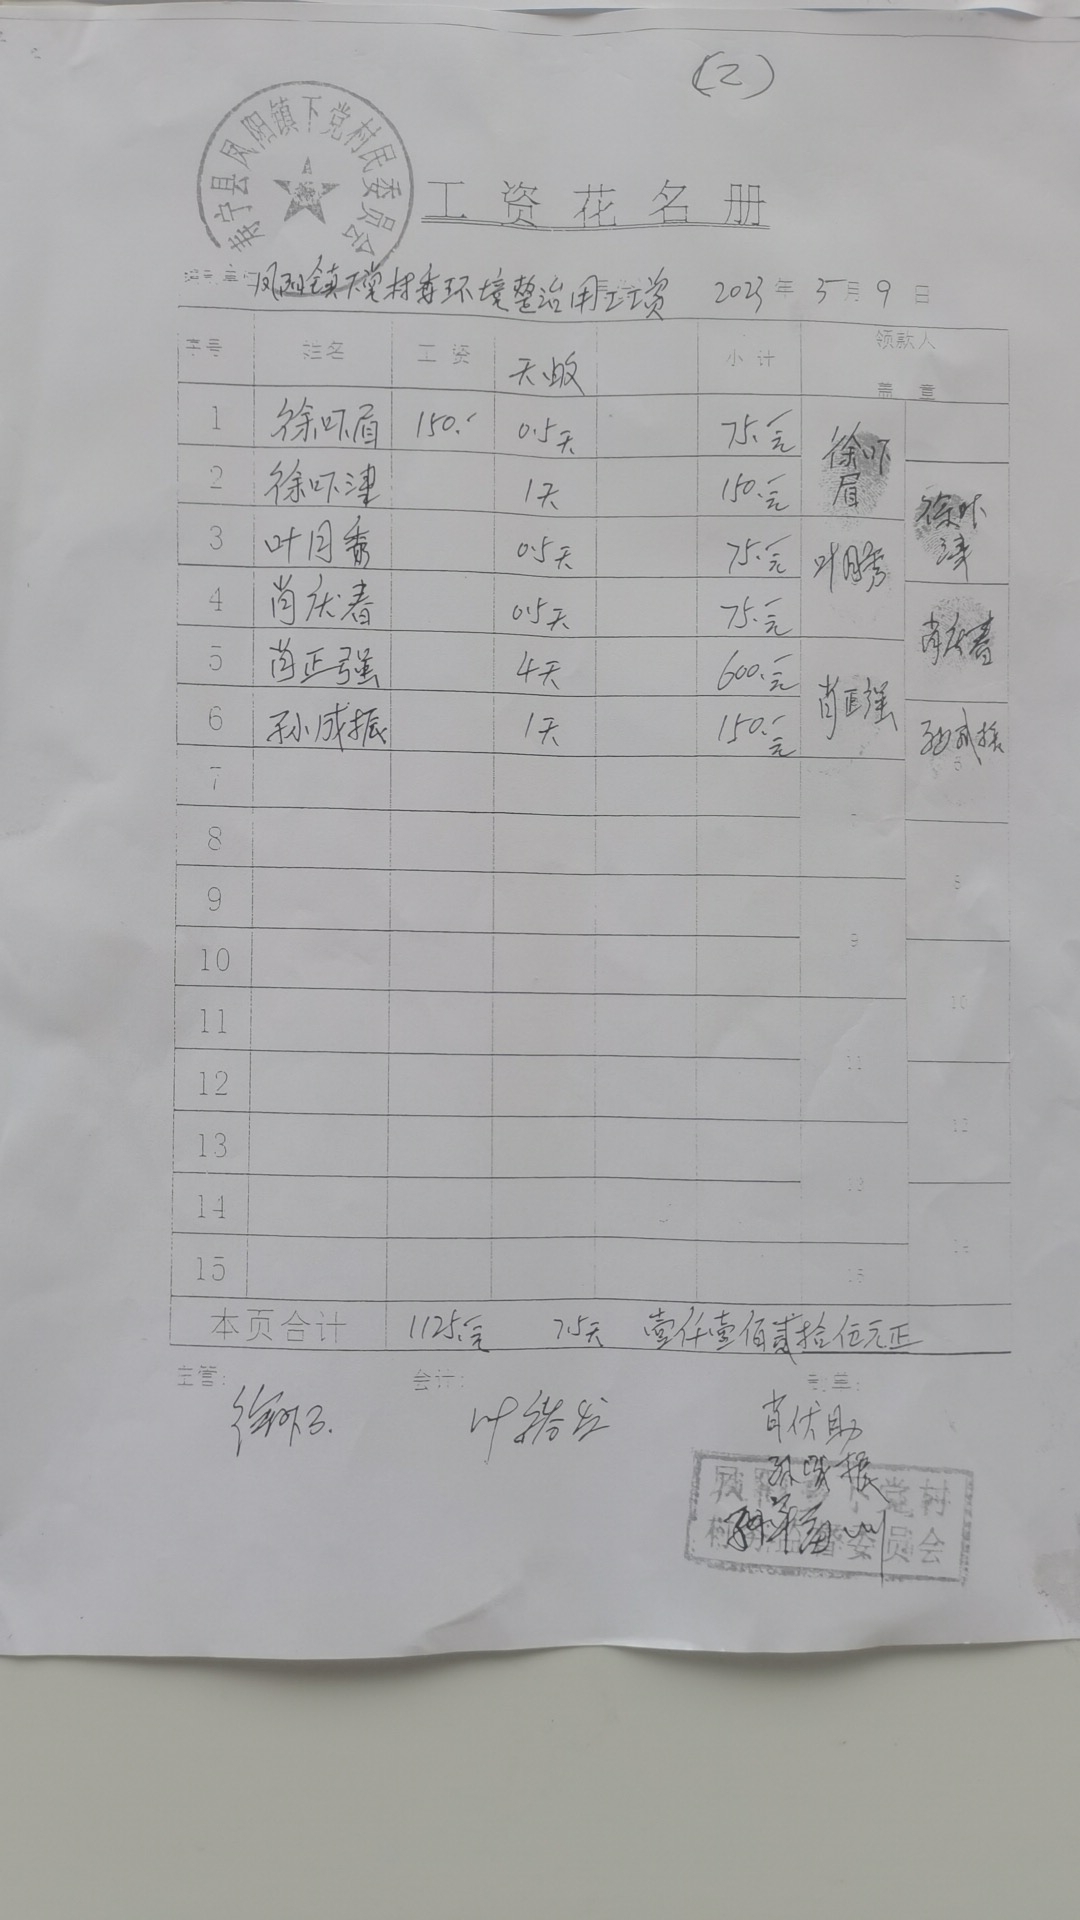 (2)
寿宁县凤阳镇下党村民委员会
工资花名册
凤阳镇下党村委环境整治用工工资 2023年5月9日
序号 姓名 工资 天数 小计 领款人
盖章
1 徐吓眉 150.- 0.5天 75.-元 徐吓眉
2 徐吓津 1天 150.-元 徐吓津
3 叶月秀 0.5天 75.-元 叶月秀
4 肖庆春 0.5天 75.-元 肖庆春
5 肖正强 4天 600.-元 肖正强
6 孙成振 1天 150.-元 孙成振
7
8
9
10
11
12
13
14
15
本页合计 1125.-元 7.5天 壹仟壹佰贰拾伍元正
主管: 会计: 制单:
肖伏助
孙成振
凤阳镇下党村
村务监督委员会